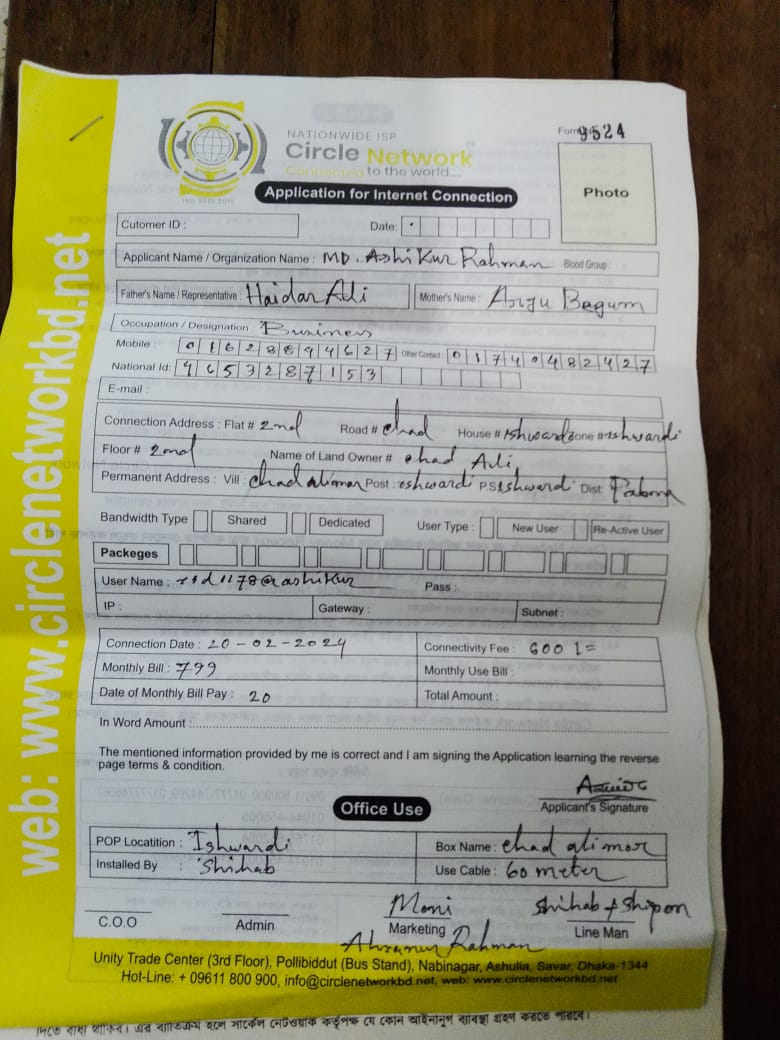 Form No. 9524
NATIONWIDE ISP
Circle Network
Connected to the world....
ISO 9001:2015
Photo
Application for Internet Connection
Cutomer ID :
Date:
Applicant Name / Organization Name : MD. Ashikur Rahman Blood Group :
Father's Name / Representative : Haidar Ali Mother's Name : Begum
Occupation / Designation : Business
Mobile : 01628894627 Other Contact : 01740482427
National Id: 9653287153
E-mail :
Connection Address : Flat # 2nd Road # chad House # Ishwardi Zone # Ishwardi
Floor # 2nd Name of Land Owner # chad Ali
Permanent Address : Vill : chad alimor Post : eshwardi P.S Ishwardi Dist: Pabna
Bandwidth Type Shared Dedicated User Type : New User Re-Active User
Packeges
User Name : Pass :
IP : Gateway : Subnet :
Connection Date : 20-02-2024 Connectivity Fee : 600/=
Monthly Bill : 799 Monthly Use Bill :
Date of Monthly Bill Pay : 20 Total Amount :
In Word Amount :
The mentioned information provided by me is correct and I am signing the Application learning the reverse
page terms & condition.
Applicant's Signature
Office Use
POP Locatition : Ishwardi Box Name : chad alimor
Installed By : Shihab Use Cable : 60 meter
Moni Shihab + Shipon
C.O.O Admin Marketing Line Man
Rahman
Unity Trade Center (3rd Floor), Pollibiddut (Bus Stand), Nabinagar, Ashulia, Savar, Dhaka-1344
Hot-Line: + 09611 800 900, info@circlenetworkbd.net, web: www.circlenetworkbd.net
web: www.circlenetworkbd.net
দিতে বাধ্য থাকিব। এর ব্যতিক্রম হলে সার্কেল নেটওয়ার্ক কর্তৃপক্ষ যে কোন আইনানুগ ব্যবস্থা গ্রহণ করতে পারবে।